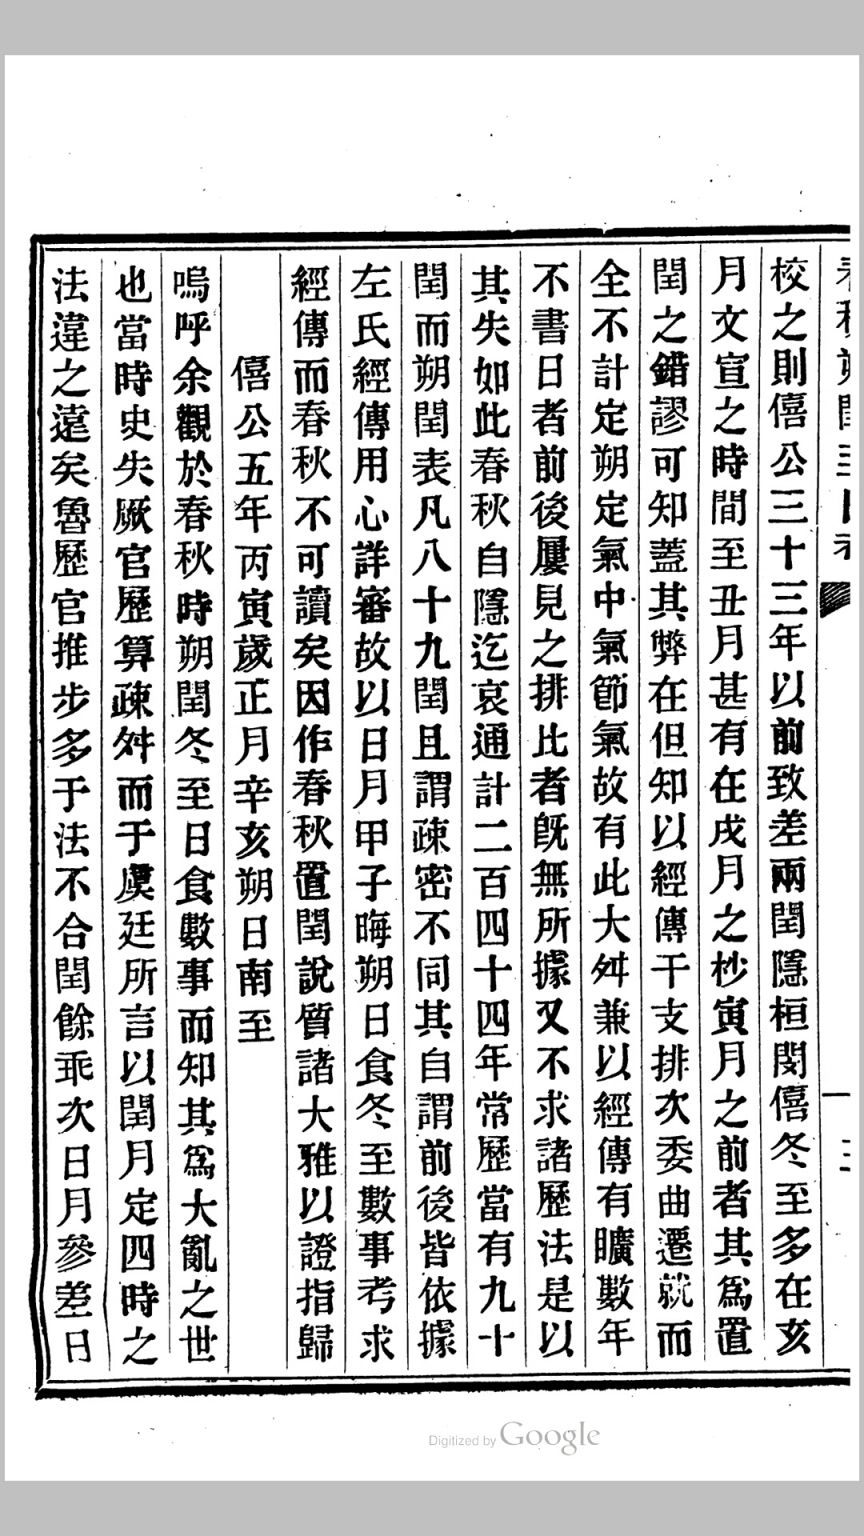 校之則僖公三十三年以前致差兩閏隱桓閔僖冬至多在亥
月文宣之時間至丑月甚有在戌月之杪寅月之前者其爲置
閏之錯謬可知蓋其弊在但知以經傳干支排次委曲遷就而
全不計定朔定氣中氣節氣故有此大舛兼以經傳有曠數年
不書日者前後屢見之排比者旣無所據又不求諸歷法是以
其失如此春秋自隱迄哀通計二百四十四年常歷當有九十
閏而朔閏表凡八十九閏且謂疎密不同其自謂前後皆依據
左氏經傳用心詳審故以日月甲子晦朔日食冬至數事考求
經傳而春秋不可讀矣因作春秋置閏說質諸大雅以證指歸
僖公五年丙寅歲正月辛亥朔日南至
嗚呼余觀於春秋時朔閏冬至日食數事而知其爲大亂之世
也當時史失厥官歷算疎舛而于虞廷所言以閏月定四時之
法違之遠矣魯歷官推步多于法不合閏餘乖次日月參差日
Digitized by Google